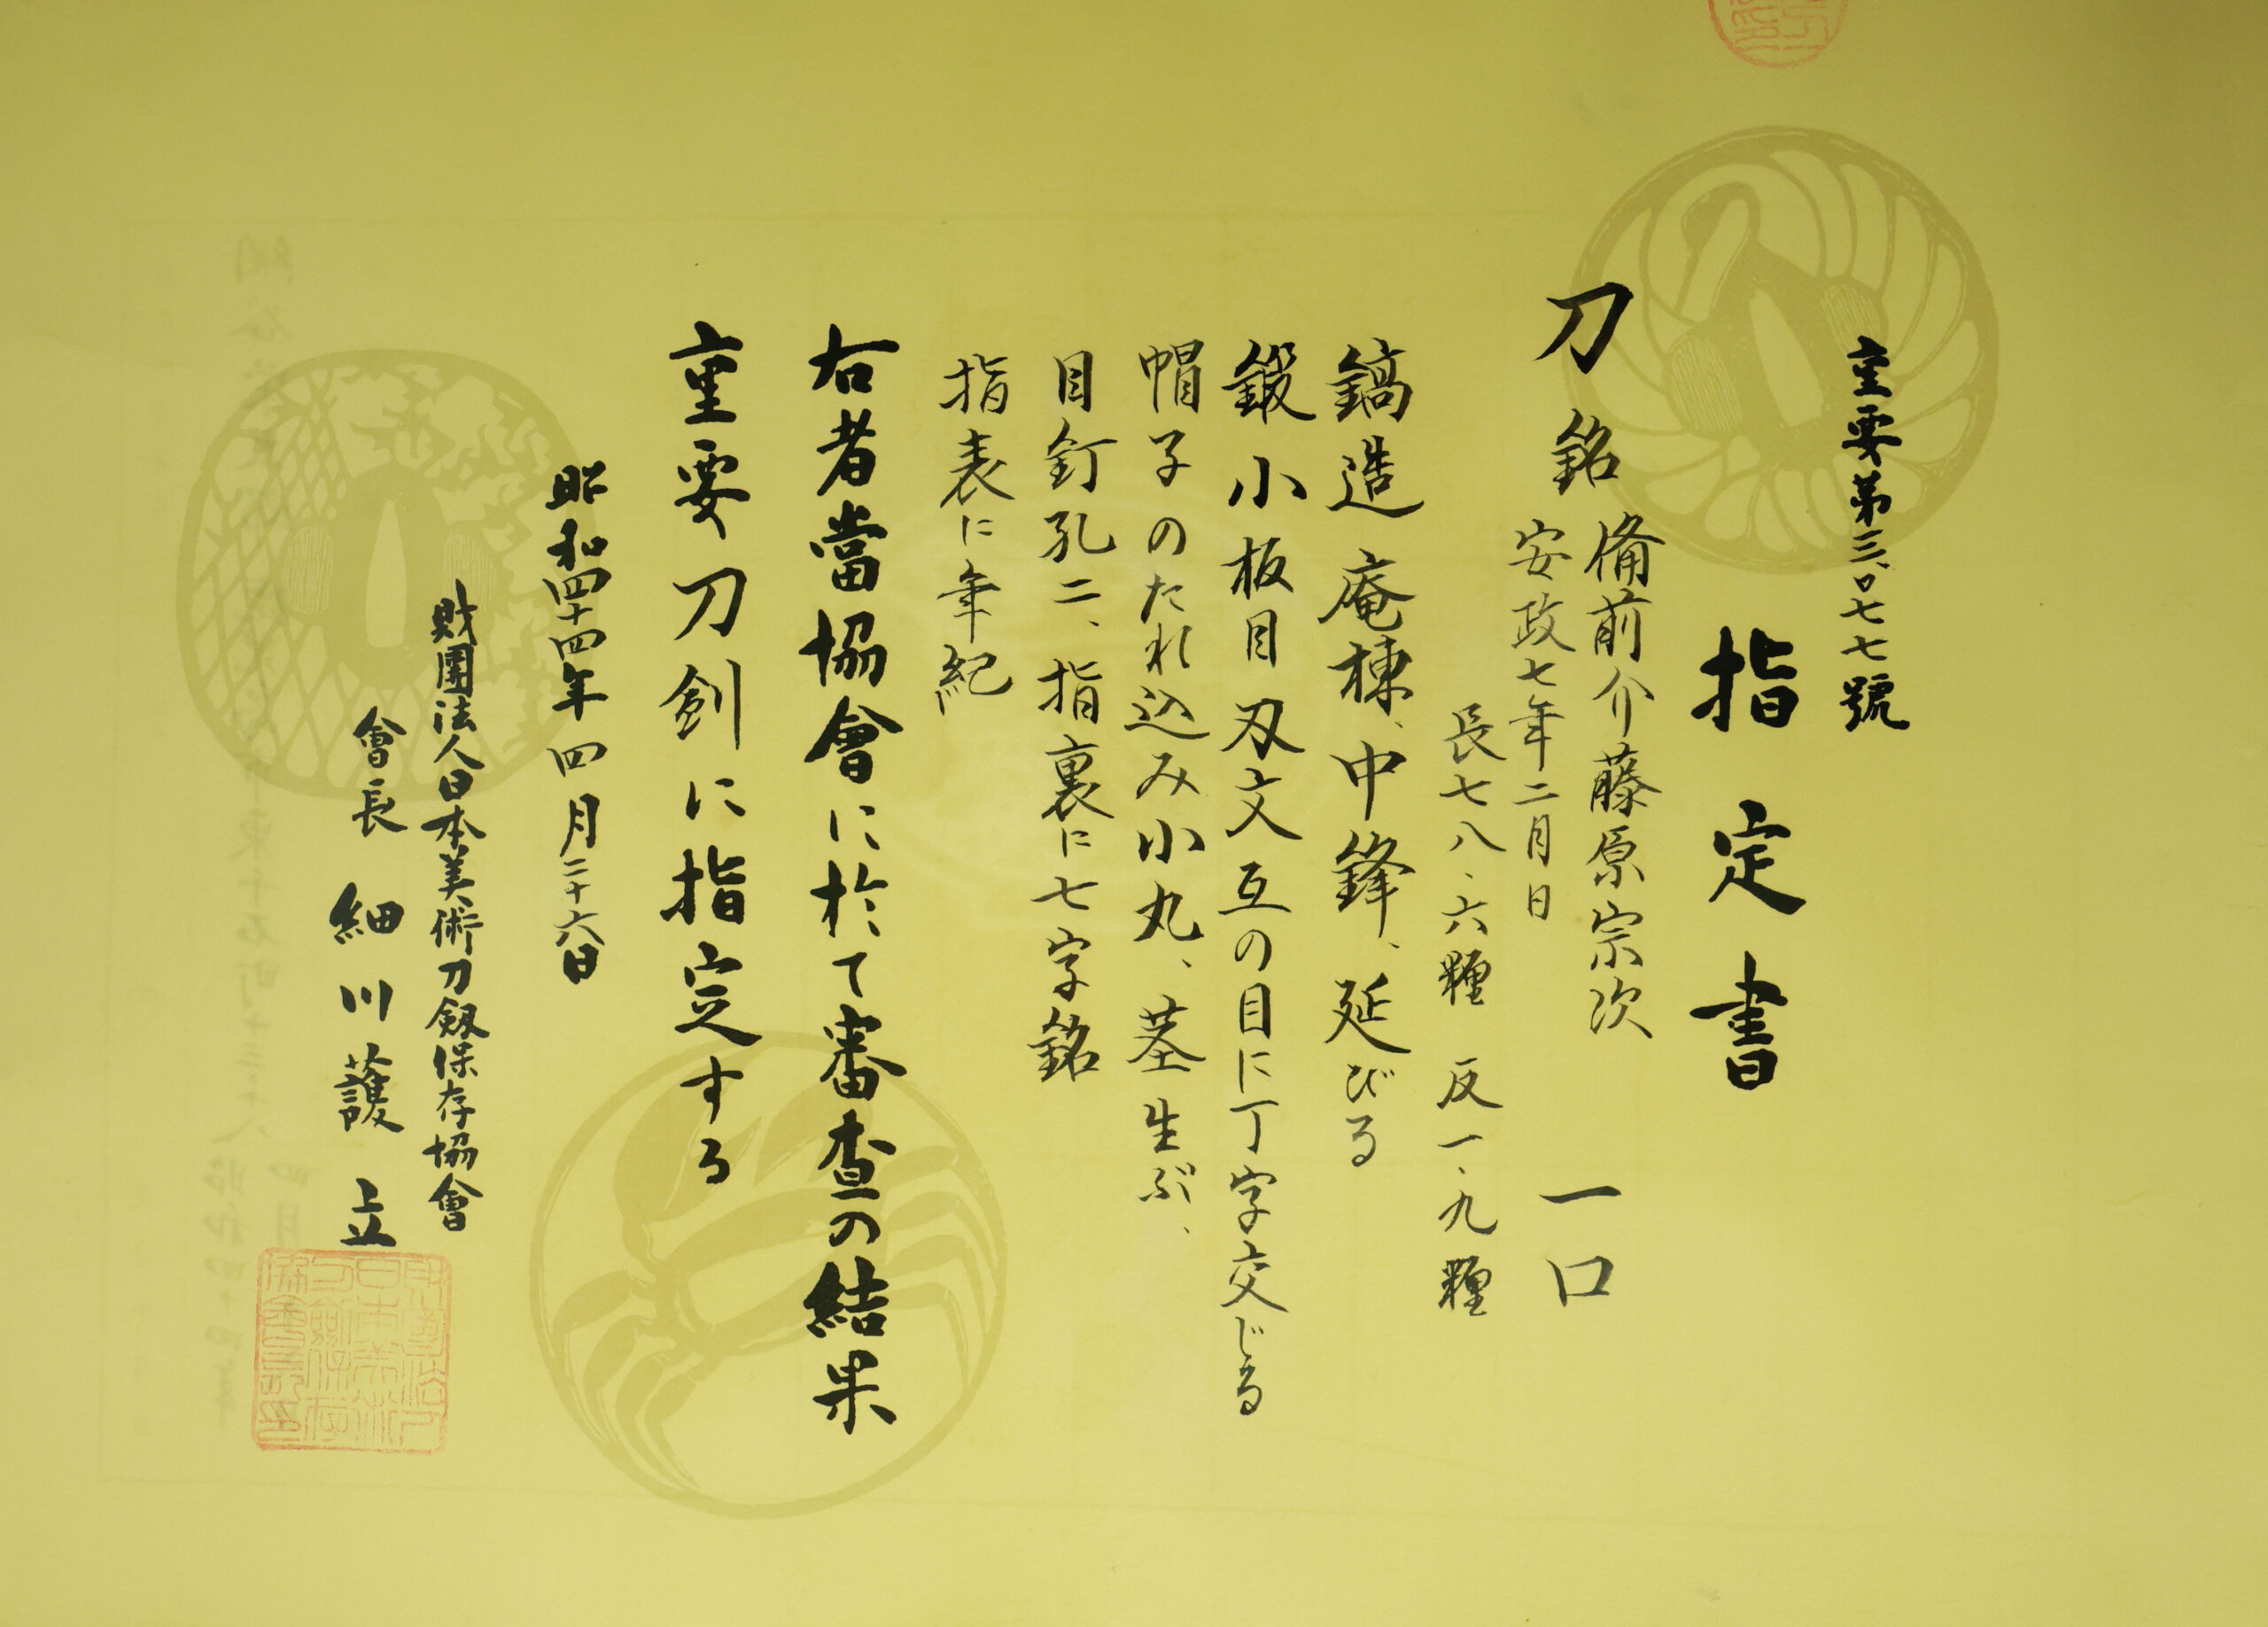 重要第三〇七七號
指定書
刀 銘 備前介藤原宗次 一口
安政七年二月日
長七八、六糎 反一、九糎
鎬造 庵棟、中鋒、延びる
鍛小板目刃文互の目に丁字交じる
帽子のたれ込み小丸、茎生ぶ、
目釘孔二、指裏に七字銘
指表に年紀
右者當協會に於て審査の結果
重要刀劍に指定する
昭和四十四年四月二十六日
財團法人日本美術刀劔保存協會
會長 細川護立